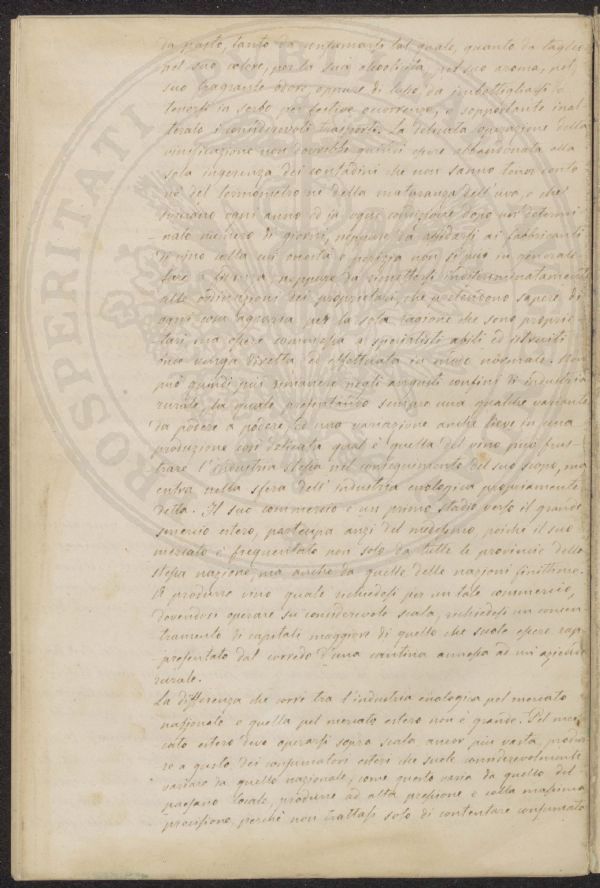 da pasto, tanto da consumarsi tal quale, quanto da taglio
pel suo colore, per la sua alcoolicità, pel suo aroma, pel
suo fragrante odore, oppure di lusso, da imbottigliarsi e
tenersi in serbo per festive occorrenze, e sopportante inal-
terato i considerevoli trasporti. La delicata operazione della
vinificazione non dovrebbe quindi essere abbandonata alla
sola ingerenza dei contadini che non sanno tener conto
nè del termometro nè della maturanza dell'uva, e che
svinano ogni anno ed in ogni condizione dopo un determi-
nato numero di giorni, neppure da affidarsi ai fabbricanti
di vino della cui onestà e perizia non si può in generale
neppure da rimettersi indeterminatamente
alle ordinazioni dei proprietari, che pretendono sapere di
ogni cosa agraria per la sola ragione che sono proprie-
tari, ma essere commessa a specialisti abili ed
ed effettuata in mode
può quindi più rimanere negli angusti confini di industria
rurale, la quale presentando sempre una qualche variante
da podere a podere, ed una variazione anche lieve in una
produzione così delicata qual'è quella del vino può frus-
trare l'industria stessa nel conseguimento del suo scopo, ma
entra nella sfera dell'industria enologica propriamente
detta. Il suo commercio è un primo stadio verso il grande
smercio estero, partecipa anzi del medesimo, poichè il suo
mercato è frequentato non solo da tutte le provincie della
stessa nazione, ma anche da quelle delle nazioni finittime.
A produrre vino quale richiedesi per un tale commercio,
dovendosi operare su considerevole scala, richiedesi un concen-
tramento di capitali maggiore di quello che suole essere rap-
presentato dal corredo d'una cantina annessa ad un'azienda
rurale.
La differenza che corre tra l'industria enologica pel mercato
nazionale e quella pel mercato estero non è grande. Pel mer-
cato estero deve operarsi sopra scala ancor più vasta, produr-
re a gusto dei consumatori esteri che suole considerevolmente
variare da quello nazionale, come questo varia da quello del
paesano locale, produrre ad alta pressione e colla massima
precisione, perchè non trattasi solo di contentare consumato